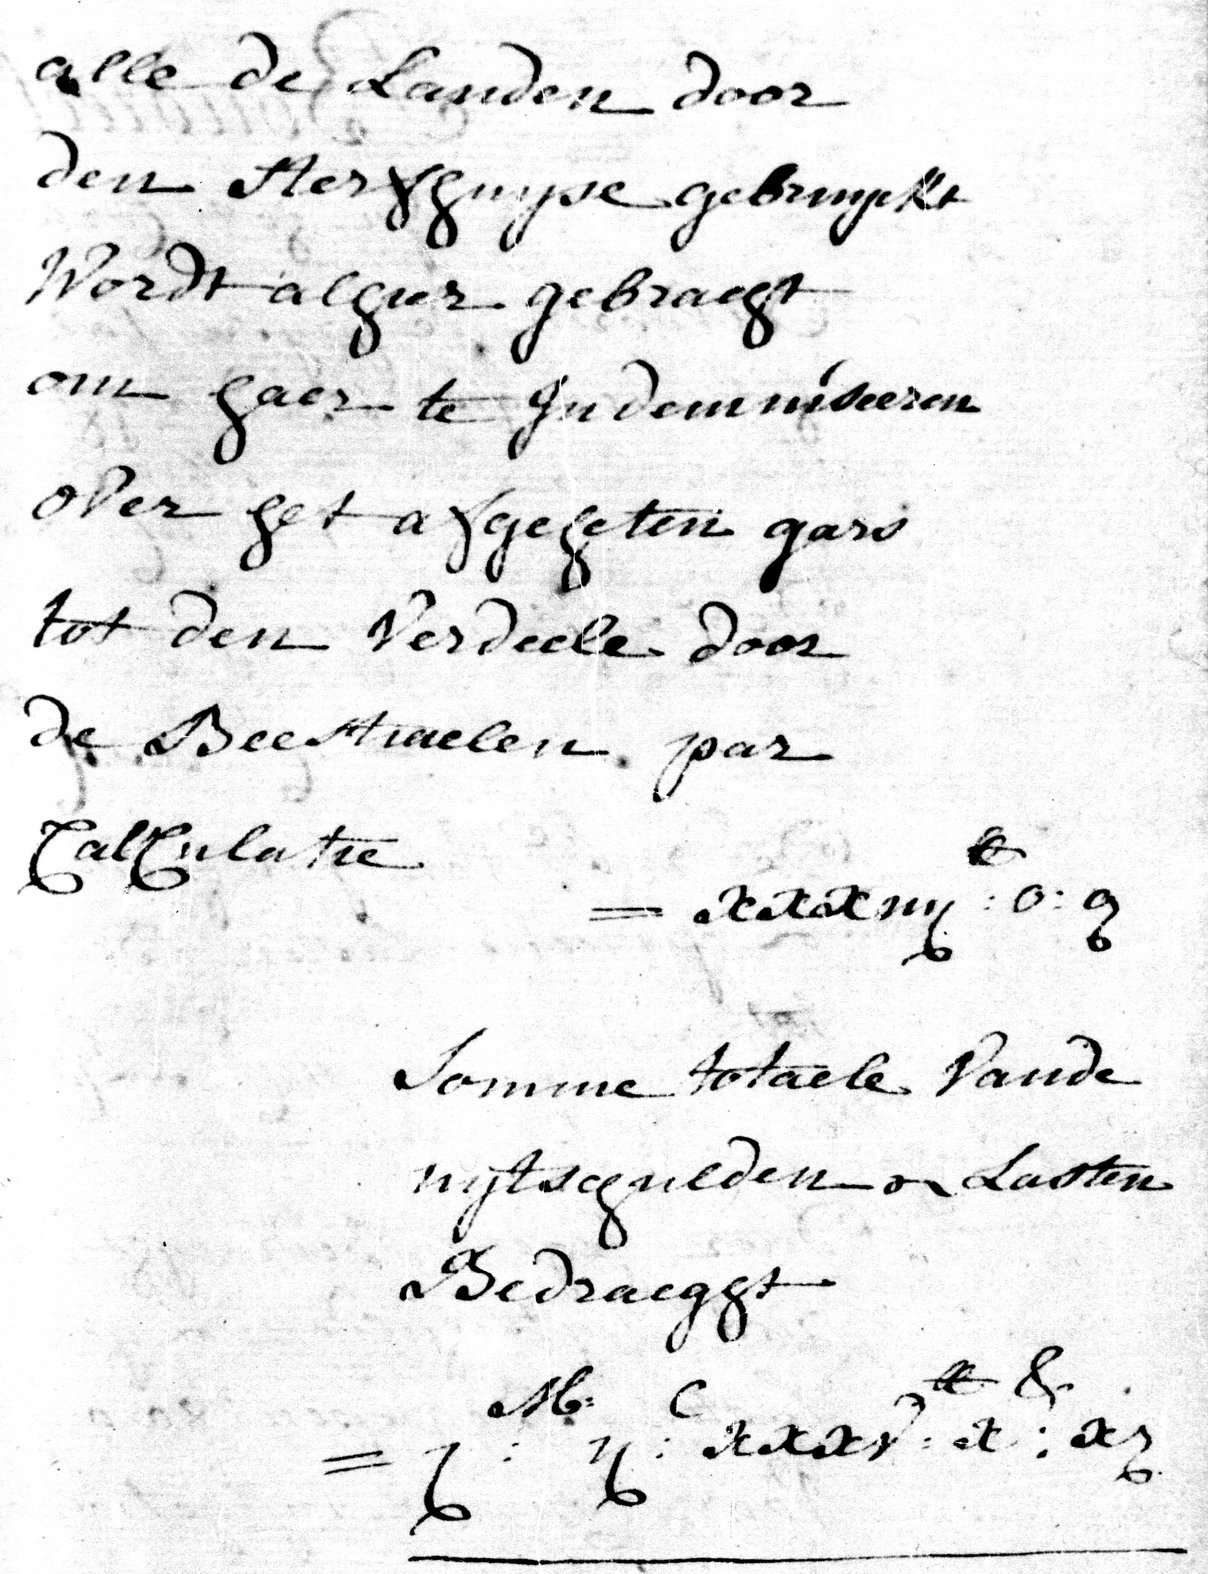 alle de Landen door
den sterfhuyse gebruyckt
Wordt alhier gebraeght
om haer te Indemniseeren
over het afgeheten gars
tot den Verdeele door
de Beestiaelen par
Calculatie
= xxxiiij ℔ : 0 : 9
Somme totaele Vande
uytschulden & Lasten
Bedraeght
= j M : ij C : xxxv ℔ : x ß : xj